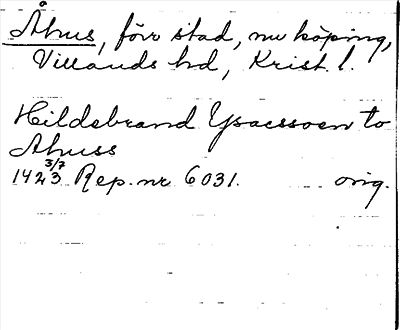 Åhus, förr stad, nu köping,
Villands hd, Krist. l.
Hildebrand Ysacssoen to
Ahuss
1423 3/7 Rep. nr 6031. orig.